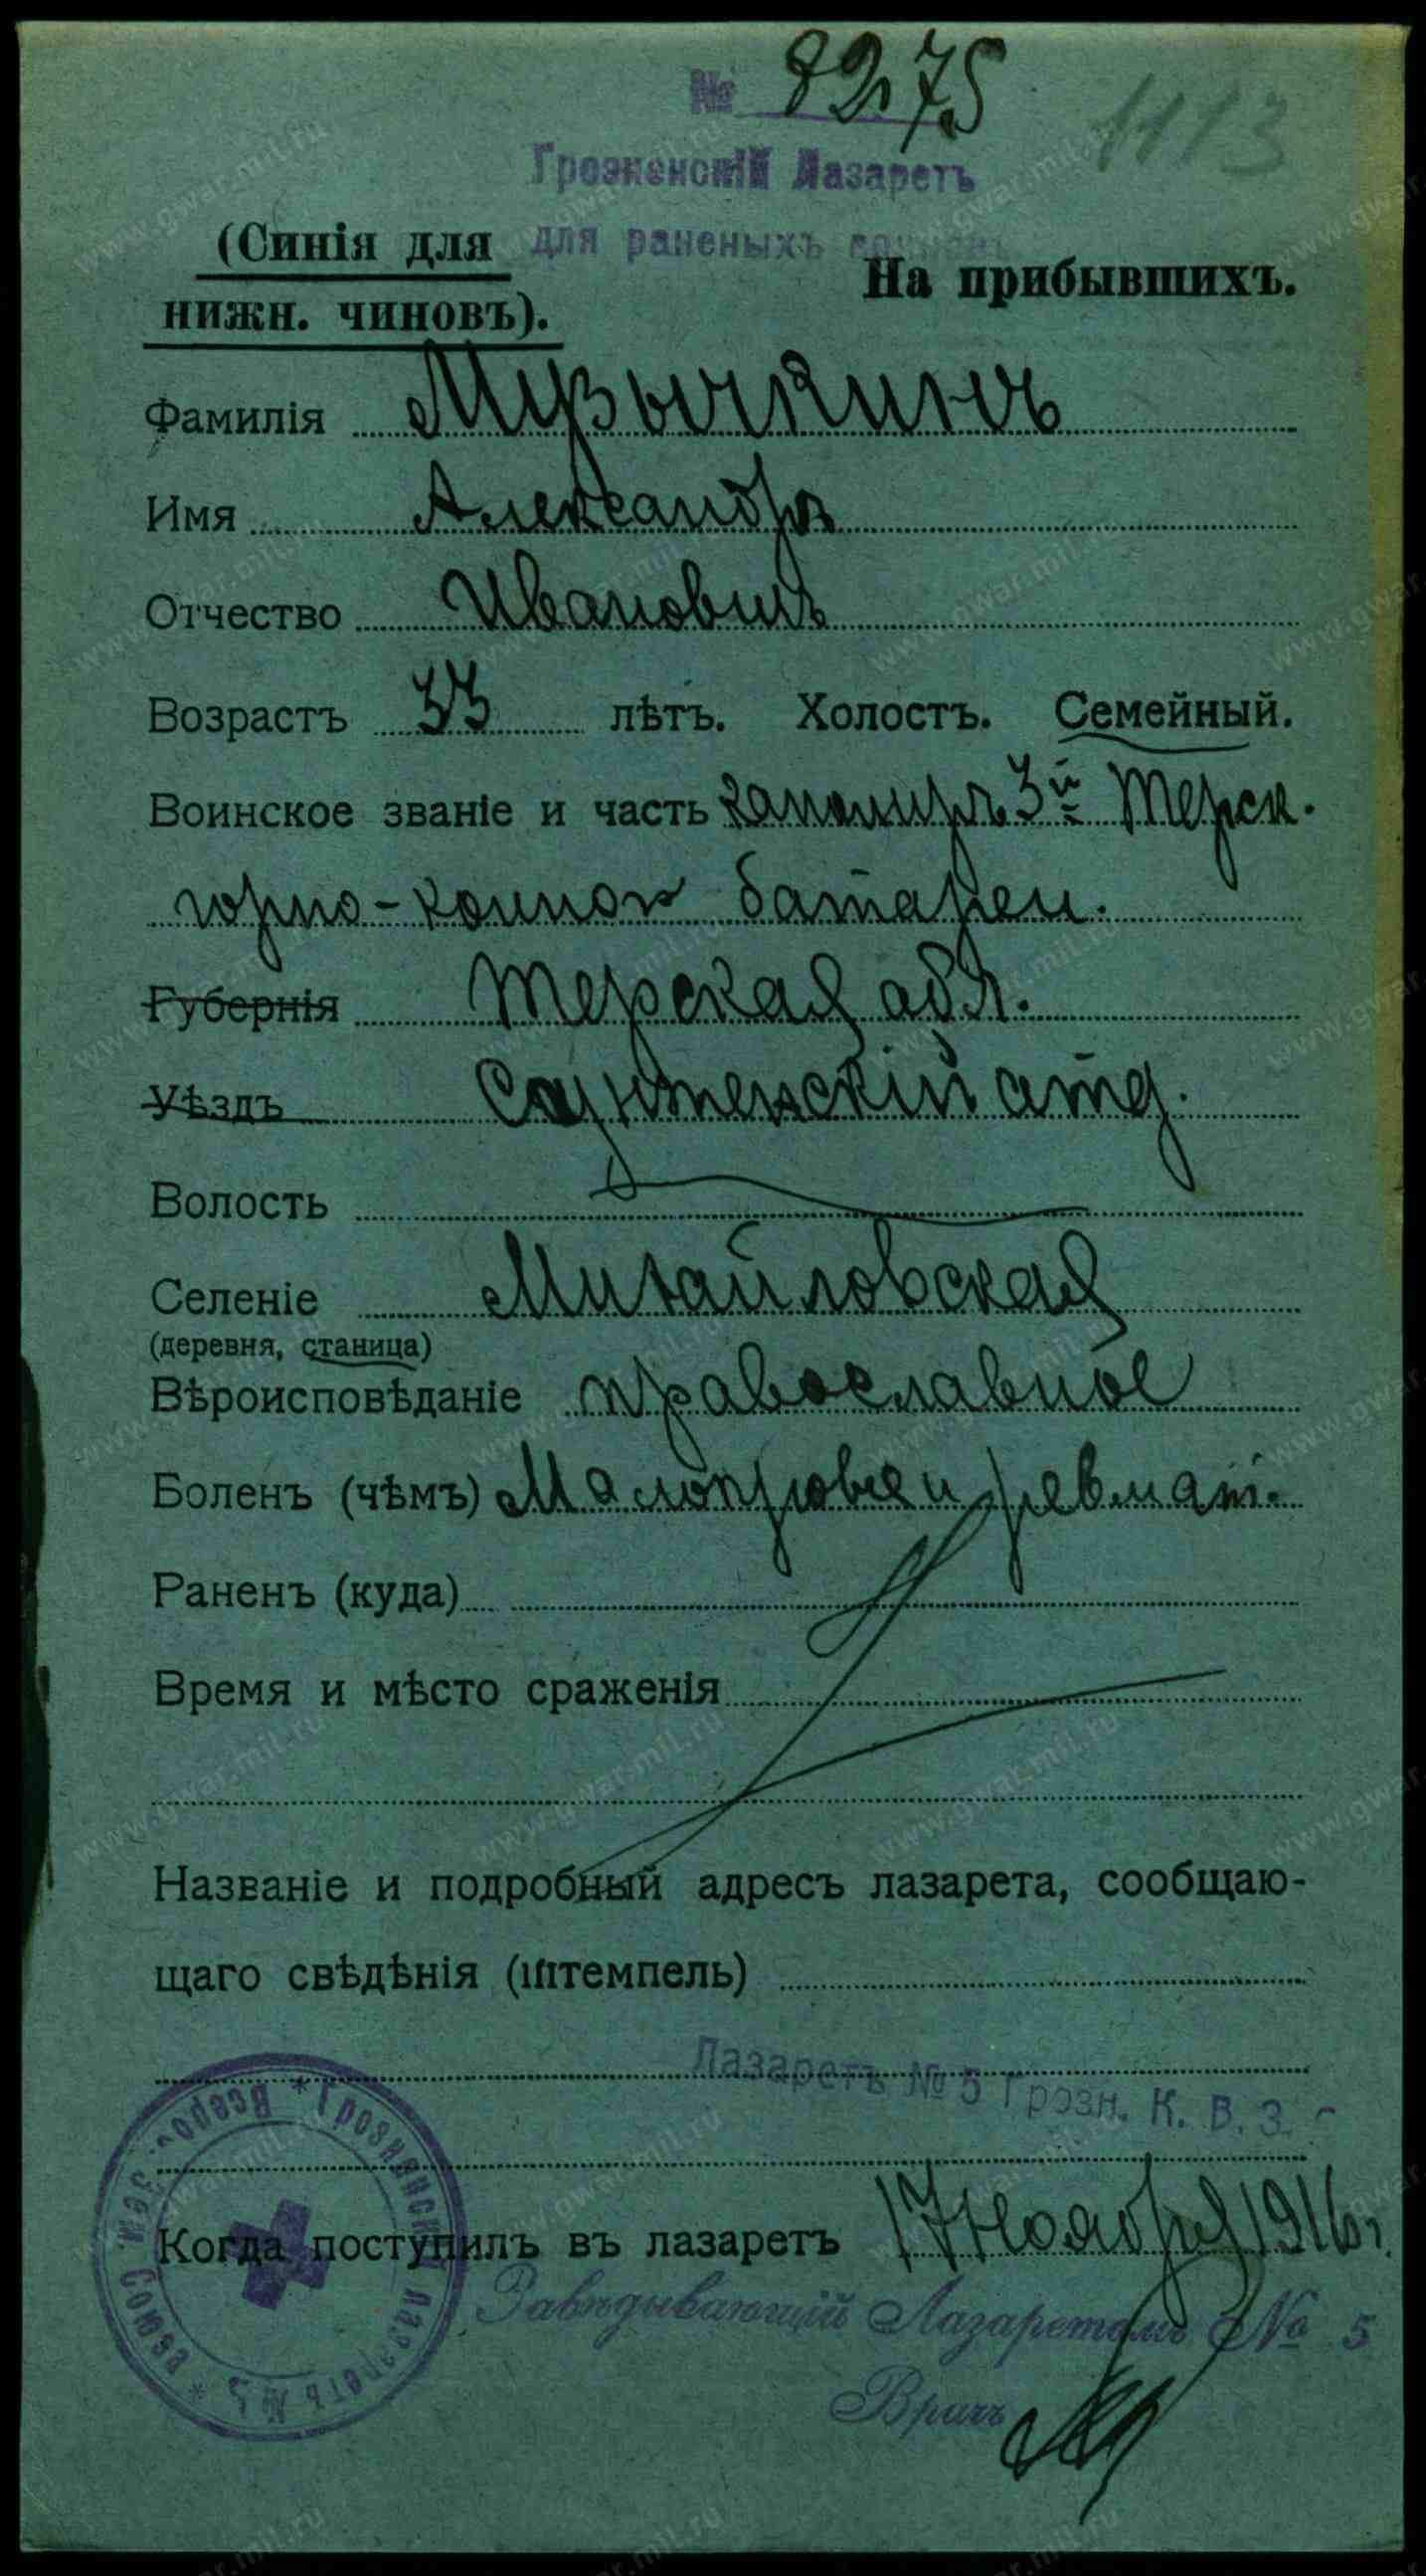 № 8275
1113
Грозненскій Лазаретъ
для раненыхъ
(Синія для
нижн. чиновъ).
На прибывшихъ.
Фамилія Музычкинъ
Имя Александръ
Отчество Ивановичъ
Возрастъ 33 лѣтъ. Холостъ. Семейный.
Воинское званіе и часть канониръ 3й Терск.
горно-конной батареи.
Губернія Терская обл.
Уѣздъ Сунженскій отд.
Волость
Селеніе Михайловская
(деревня, станица)
Вѣроисповѣданіе православное
Боленъ (чѣмъ) Малокровіе и ревмат.
Раненъ (куда)
Время и мѣсто сраженія
Названіе и подробный адресъ лазарета, сообщаю-
щаго свѣдѣнія (штемпель)
Лазаретъ № 5 Грозн. К. В. З. С
Всерос. Зем. Союза * Грозненскій лазаретъ № 5 *
Когда поступилъ въ лазаретъ 17 Ноября 1916 г.
Завѣдывающій Лазаретомъ № 5
Врачъ